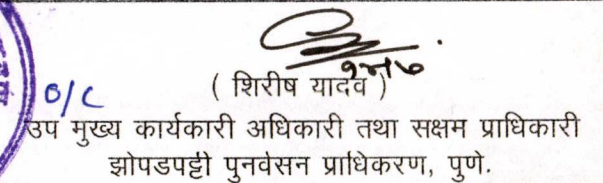 ( शिरीष यादव )
O/C
उप मुख्य कार्यकारी अधिकारी तथा सक्षम प्राधिकारी
झोपडपट्टी पुनर्वसन प्राधिकरण, पुणे.